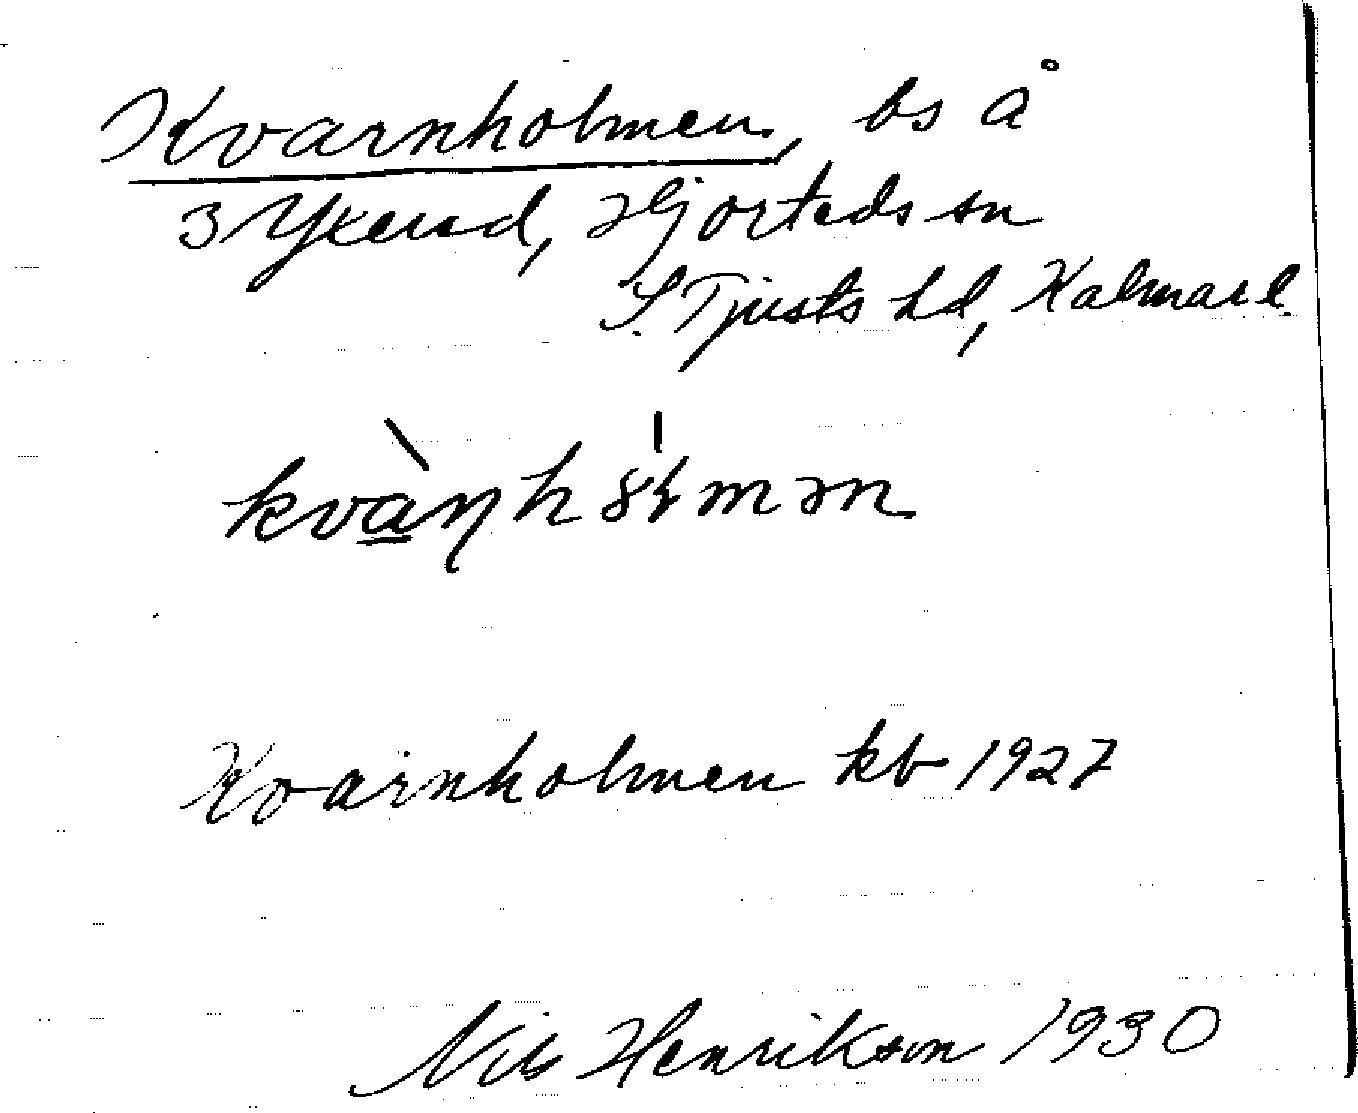 Kvarnholmen, bs å
3 Ykerud, Hjorteds sn
S. Tjusts hd, Kalmar l.
Kvarnholmen kb 1927
Nils Henrikson 1930